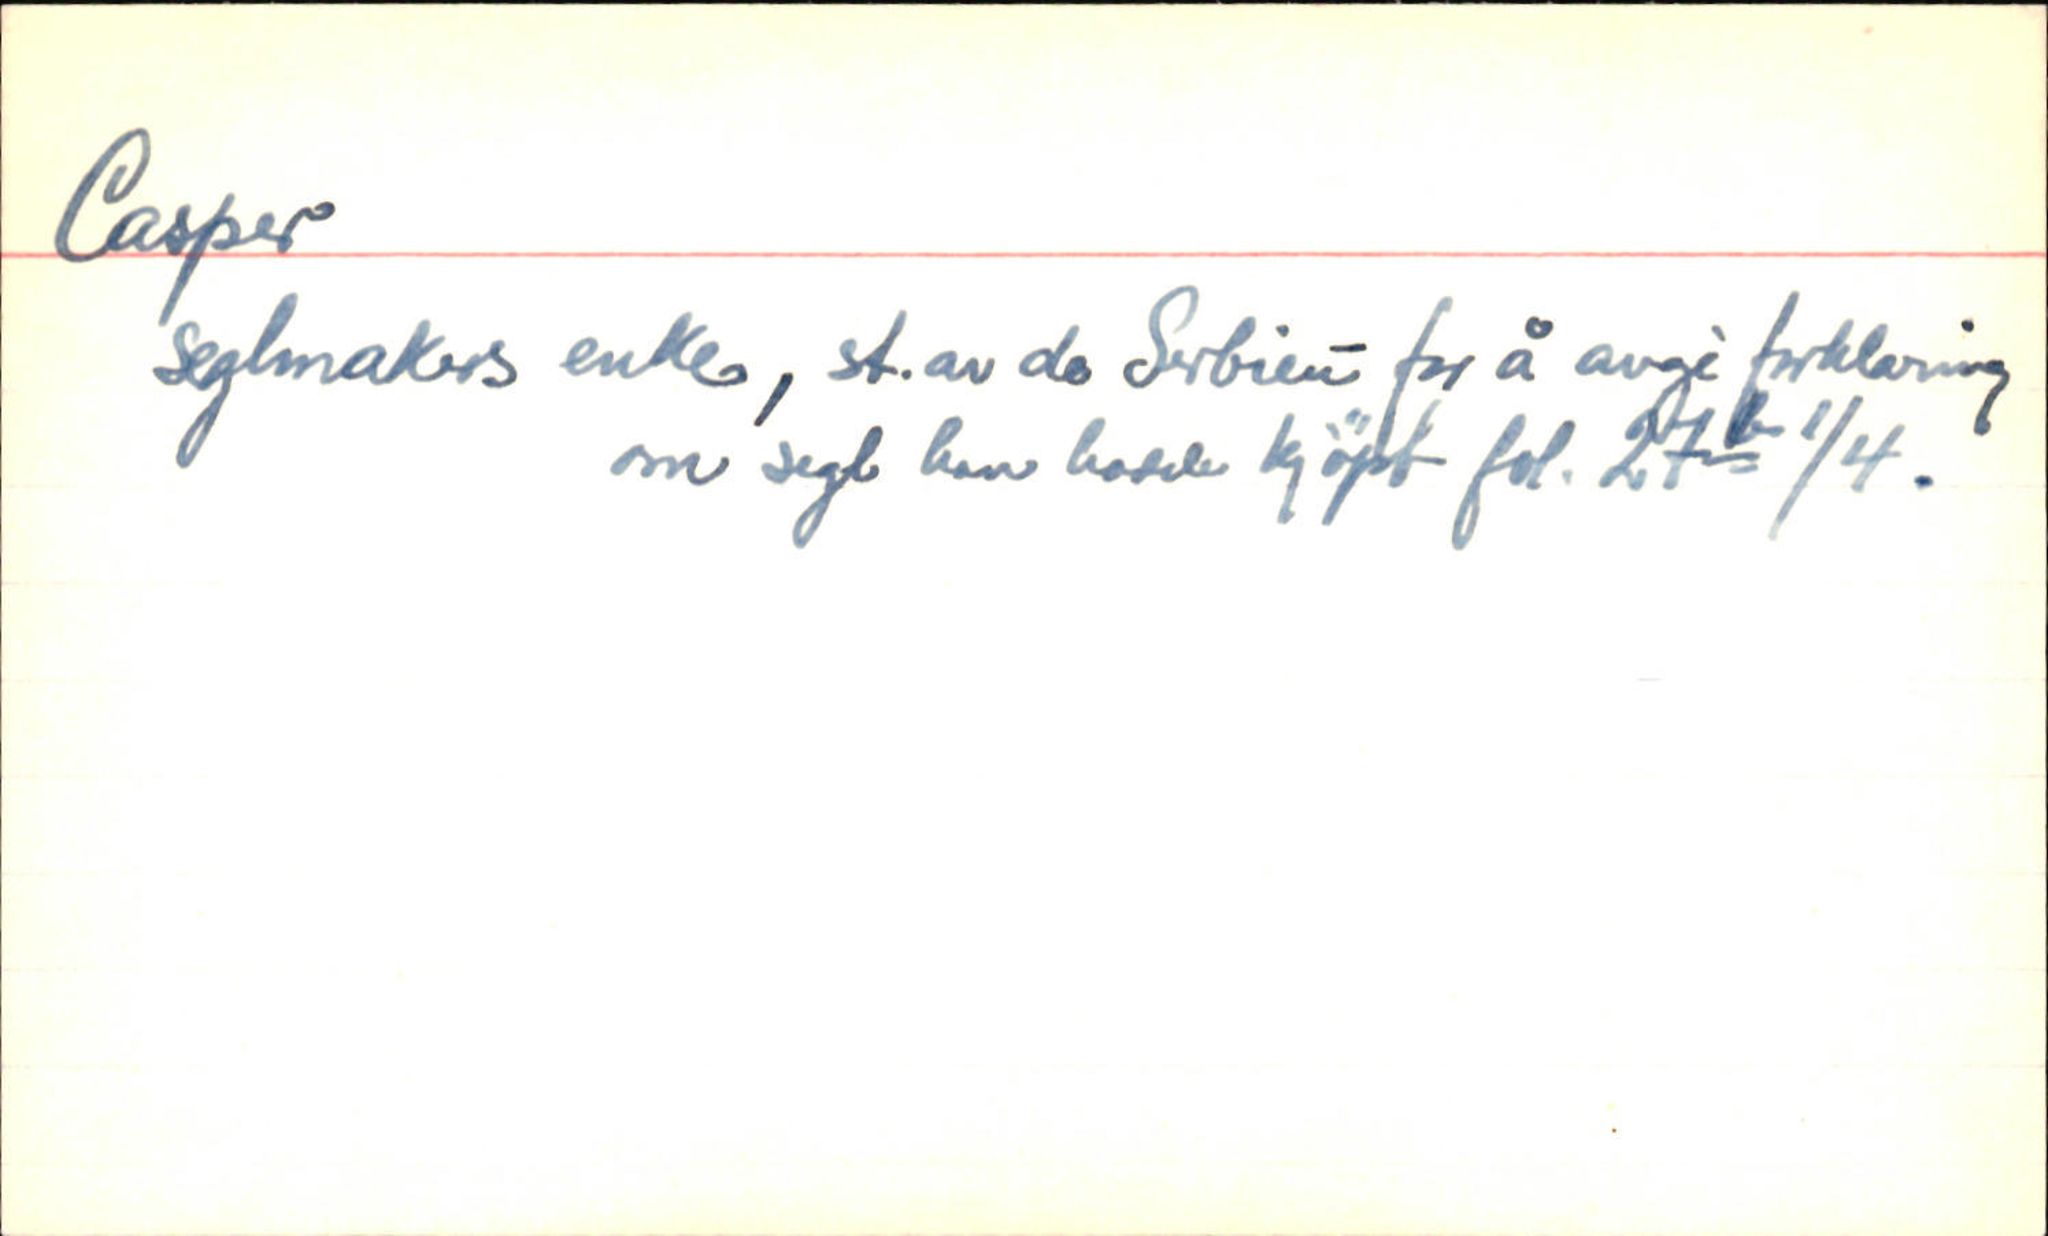 Casper
seglmakers enke, st. av de Serbien for å avgi forklaring
om segl han hadde kjöpt fol. 27b 1/4.